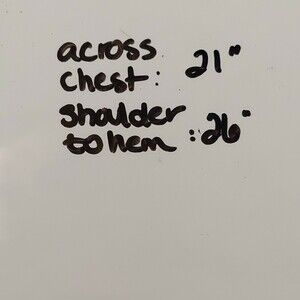 across
chest: 21"
shoulder
to hem : 26"